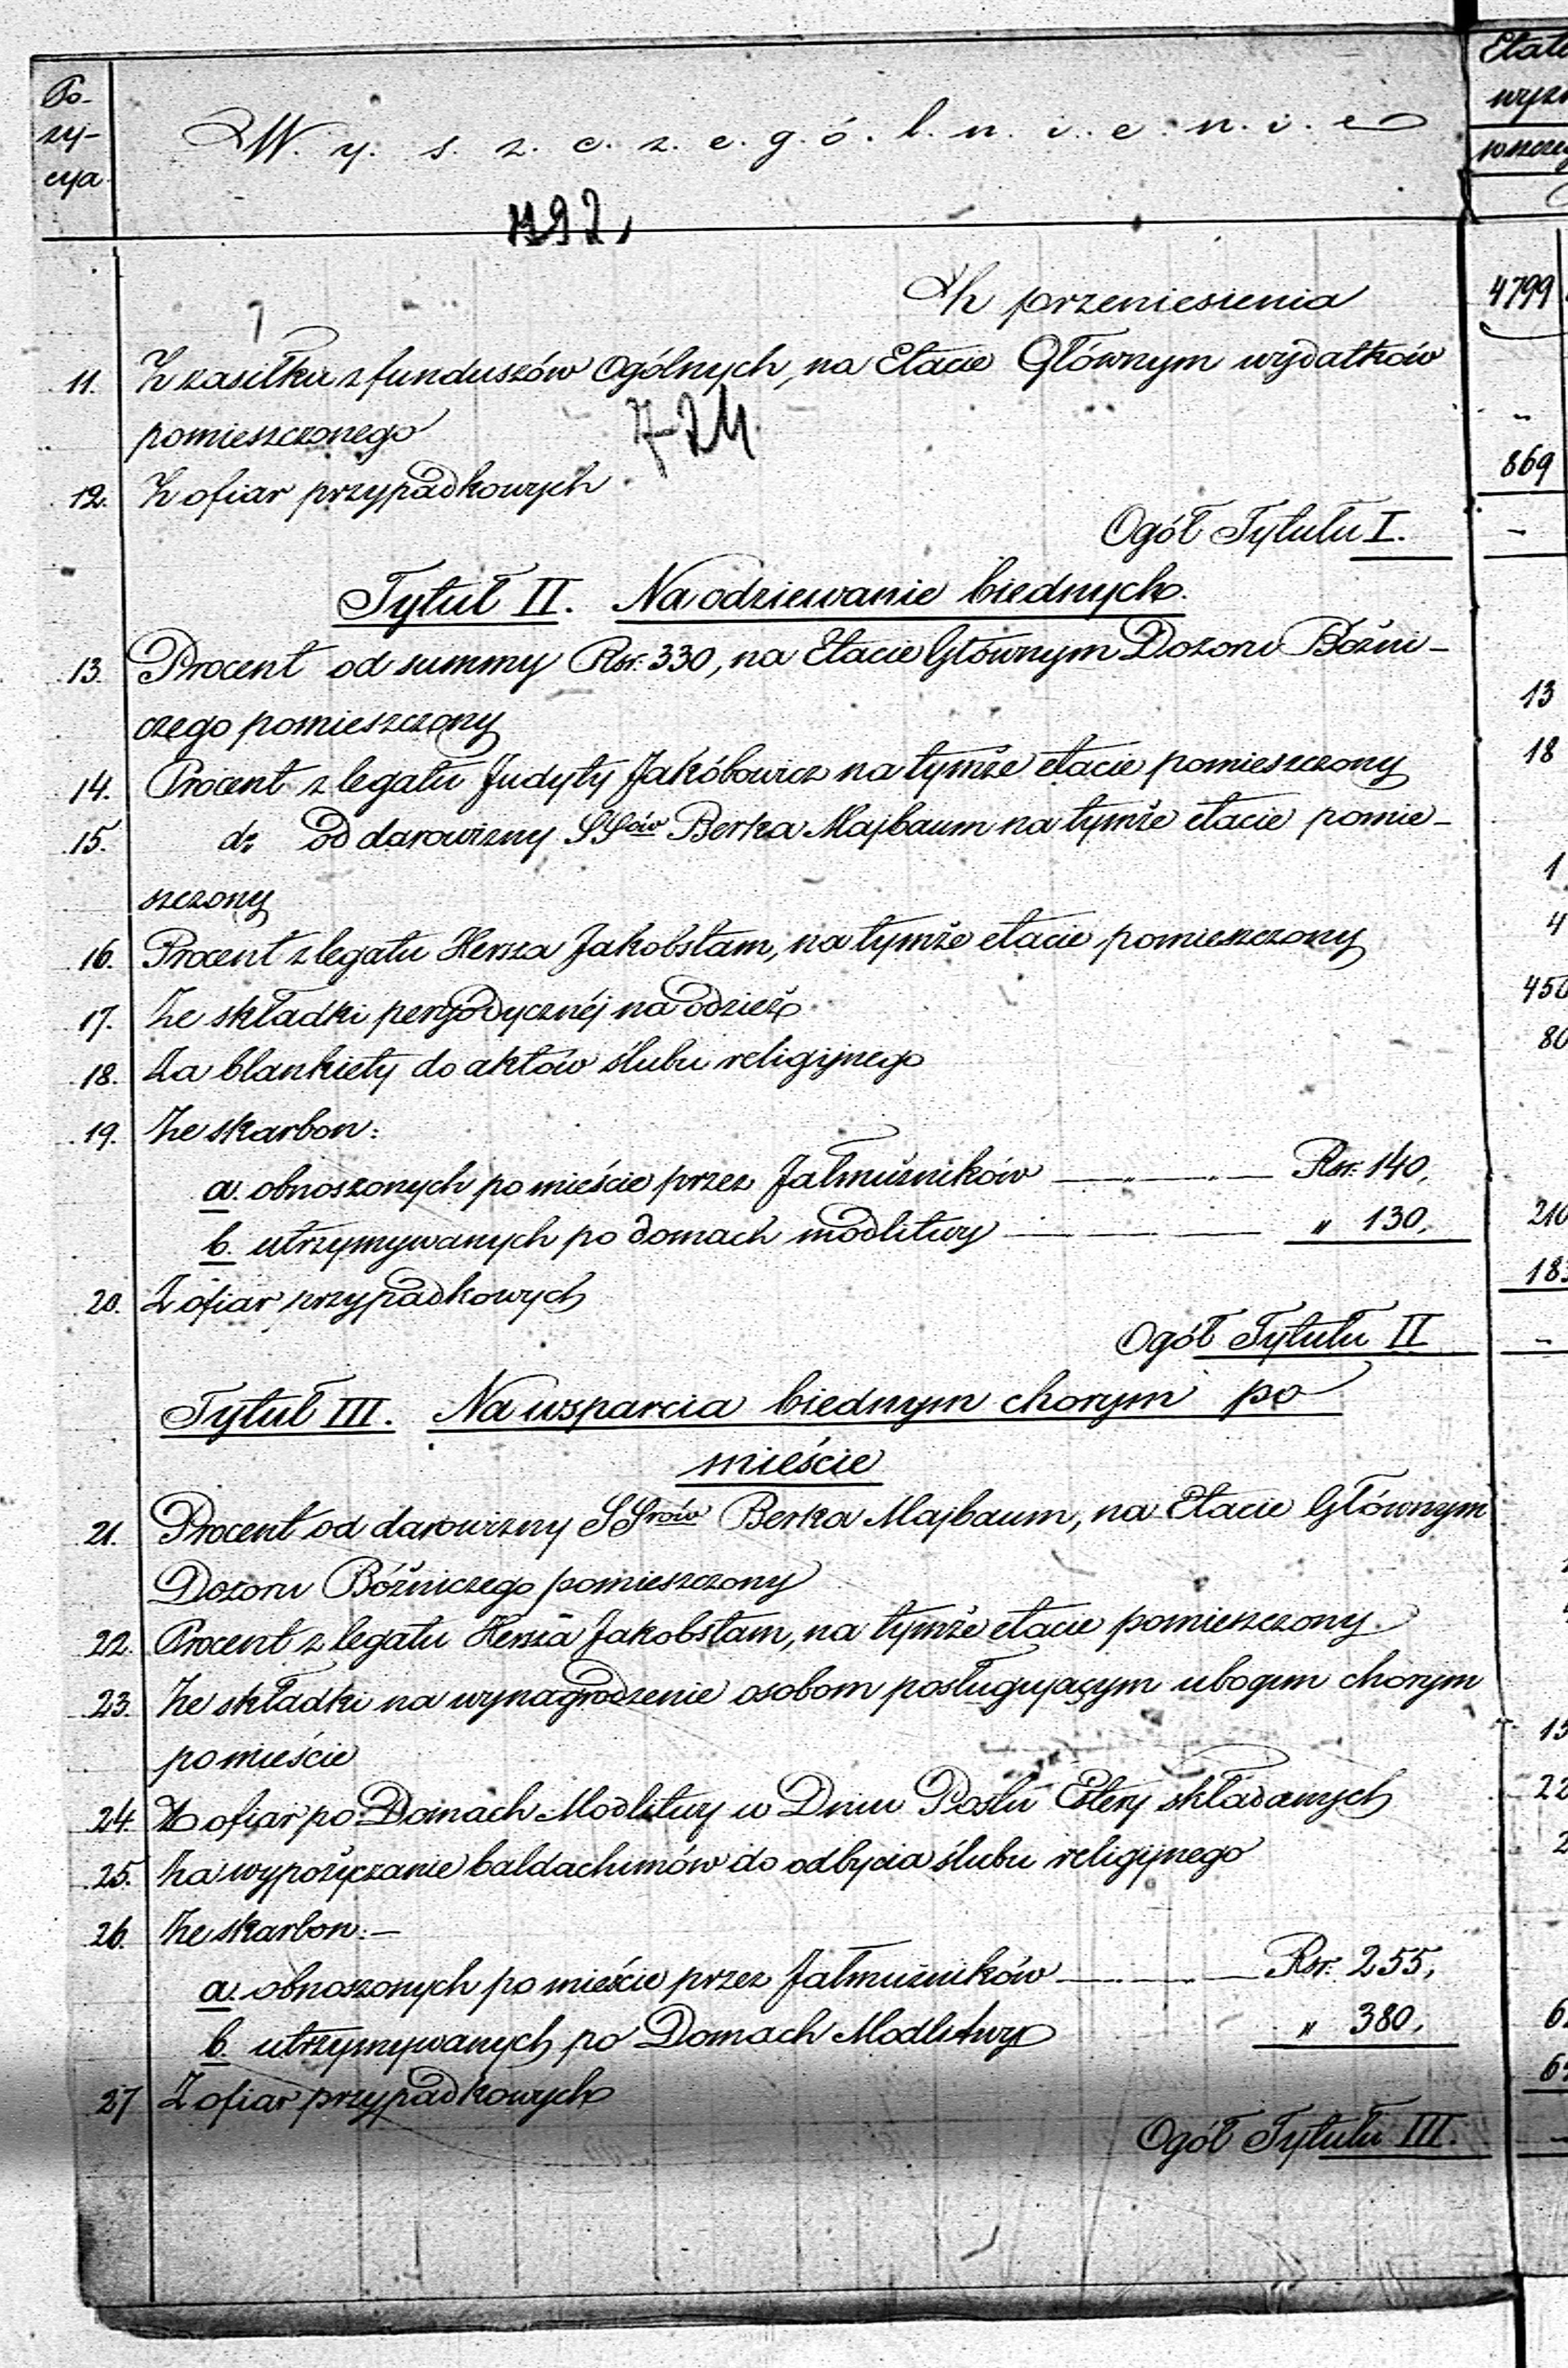 Po-
zy-
cya
W. y. s. z. c. z. e. g. ó. l. n. i. e. n. i. e
Etat
wyzn
792,
Z przeniesienia 4799
11. Z zasiłku z funduszów ogólnych, na Etacie Głównym wydatków
pomieszczonego -
724
12. Z ofiar przypadkowych 869
Ogół Tytułu I. -
Tytuł II. Na odziewanie biednych.
13. Procent od summy Rsr. 330, na Etacie Głównym Dozoru Bóźni-
czego pomieszczony 13
14. Procent z legatu Judyty Jakóbowicz na tymże etacie pomieszczony 18
15. do od darowizny SSrów Berka Majbaum na tymże etacie pomie-
szczony 1
16. Procent z legatu Hersza Jakobstam, na tymże etacie pomieszczony 4
17. Ze składki peryodycznéj na odzież 450
18. Za blankiety do aktów ślubu religijnego 80
19. Ze skarbon:
a. obnoszonych po mieście przez Jałmużników Rsr. 140,
b. utrzymywanych po domach modlitwy " 130, 210
20. Z ofiar przypadkowych 18
Ogół Tytułu II -
Tytuł III. Na wsparcia biednym chorym po
mieście
21. Procent od darowizny SSrów Berka Majbaum, na Etacie Głównym
Dozoru Bóźniczego pomieszczony
22. Procent z legatu Hersza Jakobstam, na tymże etacie pomieszczony.
23. Ze składki na wynagrodzenie osobom posługującym ubogim chorym
po mieście 15
24. Z ofiar po Domach Modlitwy w Dniu Postu Estery składanych 22
25. Za wypożyczanie baldachimów do odbycia ślubu religijnego 2
26. Ze skarbon:-
a. obnoszonych po mieście przez Jałmużników Rsr. 255,
b. utrzymywanych po Domach Modlitwy " 380, 6
27 Z ofiar przypadkowych 6
Ogół Tytułu III. -